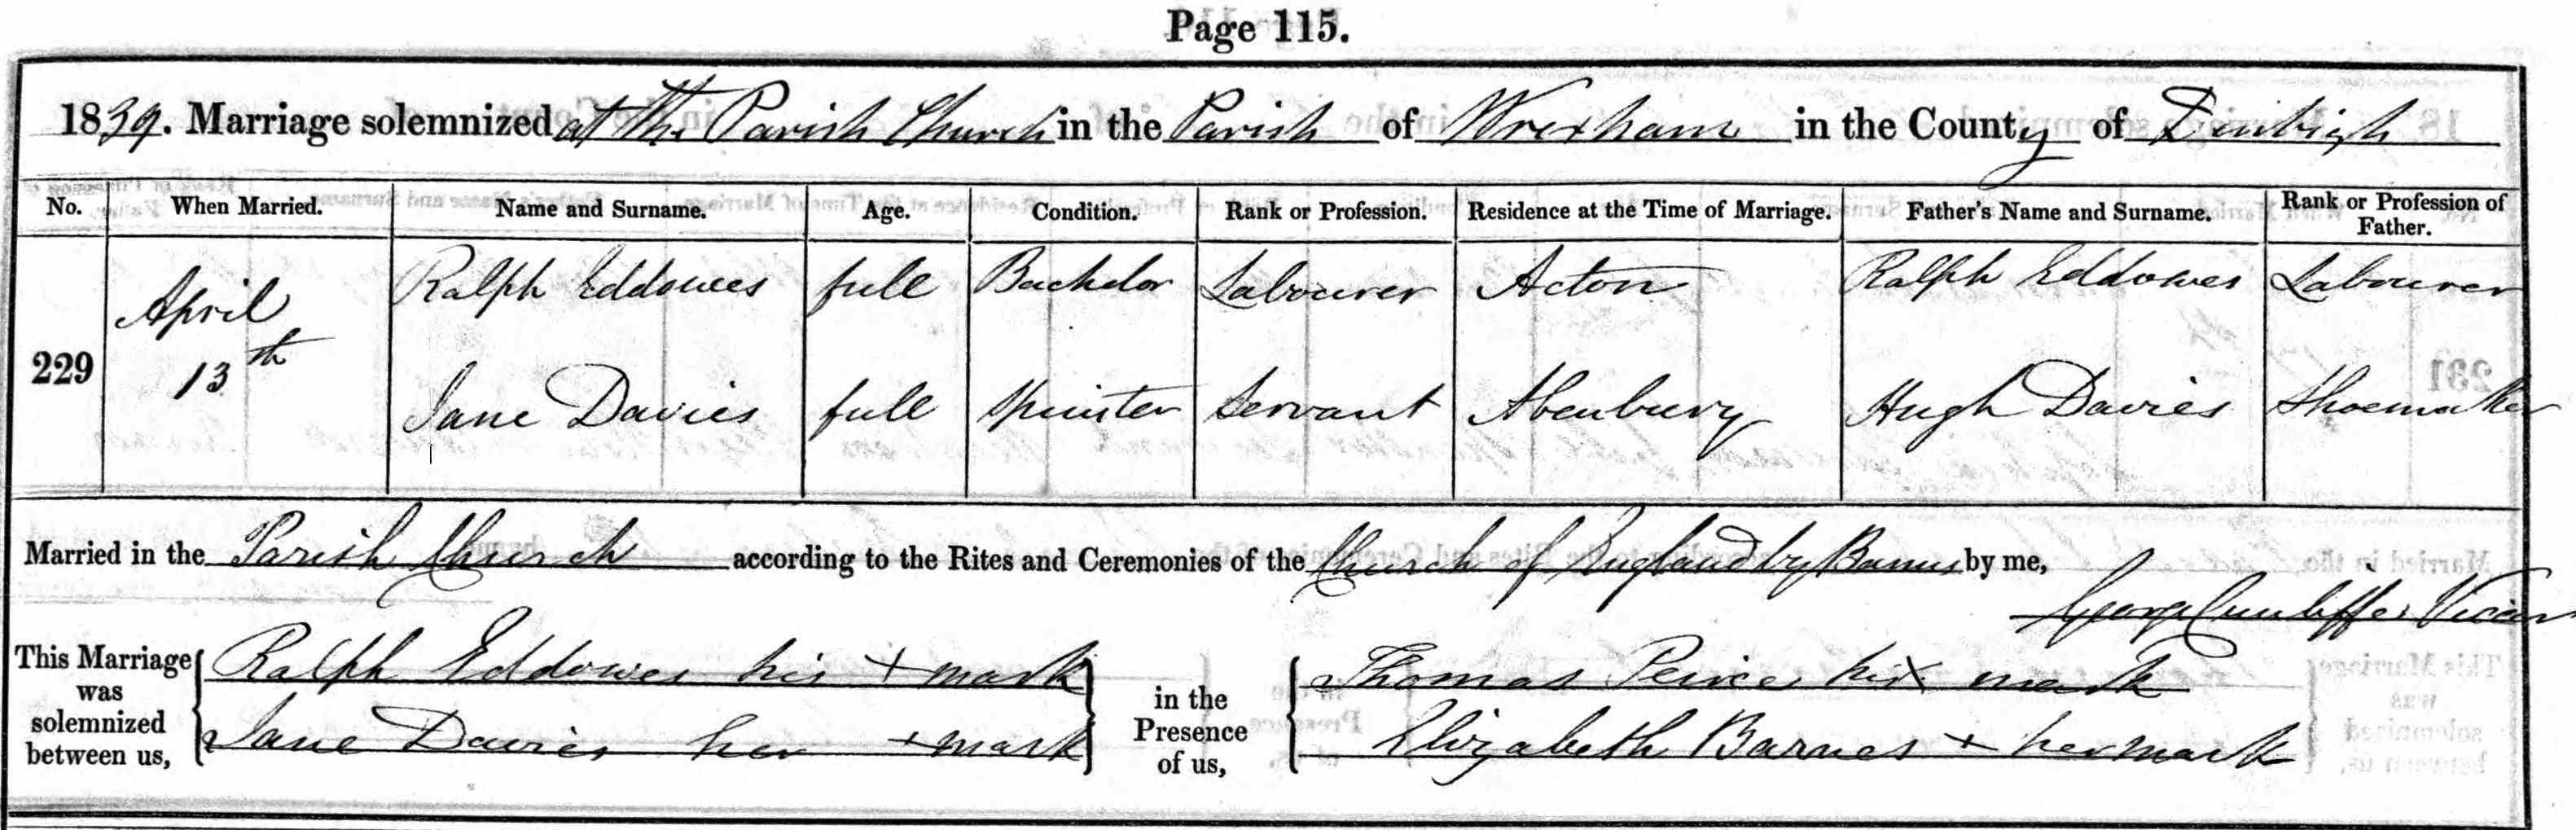 Page 115.
1839. Marriage solemnized at the Parish Church in the Parish of Wrexham in the County of Denbigh
No. When Married. Name and Surname. Age. Condition. Rank or Profession. Residence at the Time of Marriage. Father's Name and Surname. Rank or Profession of Father.
229 April 13th
Ralph Eddowes full Bachelor Labourer Acton Ralph Eddowes Labourer
Jane Davies full Spinster Servant Abenbury Hugh Davies Shoemaker
Married in the Parish Church according to the Rites and Ceremonies of the Church of England by Banns by me,
George Cunliffe Vicar
This Marriage was solemnized between us,
Ralph Eddowes his + mark
Jane Davies her + mark
in the Presence of us,
Thomas Peirce his x mark
Elizabeth Barnes + her mark